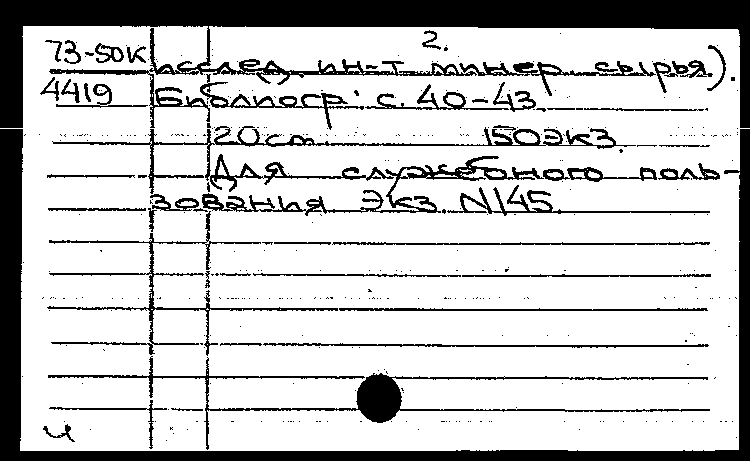 2.
73-50К исслед. ин-т минер. сырья).
4419 Библиогр: с. 40-43.
20 см. 150 экз.
Для служебного поль-
зования Экз. N145.
ч